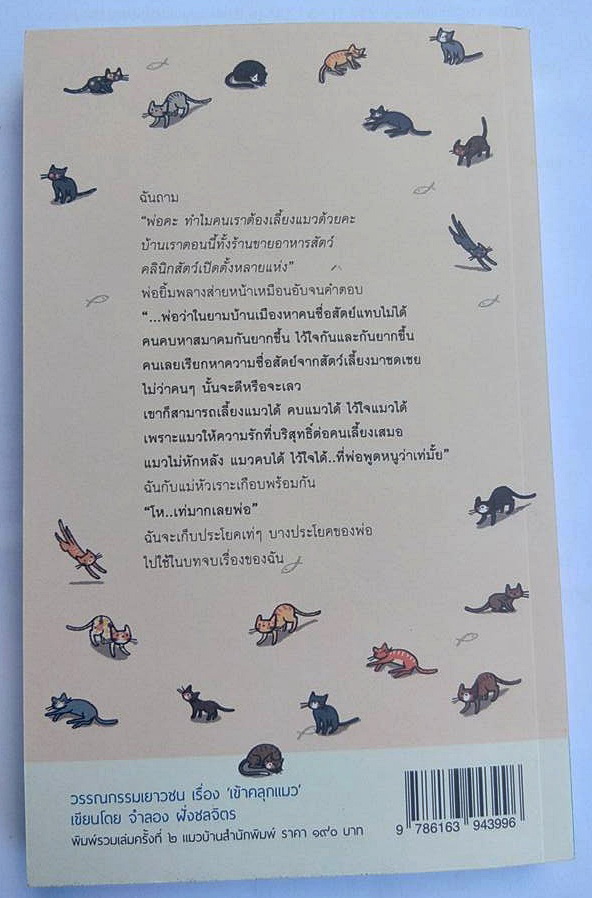 ฉันถาม
“พ่อคะ ทำไมคนเราต้องเลี้ยงแมวด้วยคะ
บ้านเราตอนนี้ทั้งร้านขายอาหารสัตว์
คลินิกสัตว์เปิดตั้งหลายแห่ง”
พ่อยิ้มพลางส่ายหน้าเหมือนอับจนคำตอบ
“...พ่อว่าในยามบ้านเมืองหาคนซื่อสัตย์แทบไม่ได้
คนคบหาสมาคมกันยากขึ้น ไว้ใจกันและกันยากขึ้น
คนเลยเรียกหาความซื่อสัตย์จากสัตว์เลี้ยงมาชดเชย
ไม่ว่าคนๆ นั้นจะดีหรือจะเลว
เขาก็สามารถเลี้ยงแมวได้ คบแมวได้ ไว้ใจแมวได้
เพราะแมวให้ความรักที่บริสุทธิ์ต่อคนเลี้ยงเสมอ
แมวไม่หักหลัง แมวคบได้ ไว้ใจได้..ที่พ่อพูดหนูว่าเท่มั้ย”
ฉันกับแม่หัวเราะเกือบพร้อมกัน
“โห..เท่มากเลยพ่อ”
ฉันจะเก็บประโยคเท่ๆ บางประโยคของพ่อ
ไปใช้ในบทจบเรื่องของฉัน
วรรณกรรมเยาวชน เรื่อง ‘เข้าคลุกแมว’
เขียนโดย จำลอง ฝั่งชลจิตร
พิมพ์รวมเล่มครั้งที่ ๒ แมวบ้านสำนักพิมพ์ ราคา ๑๙๐ บาท
9 786163 943996